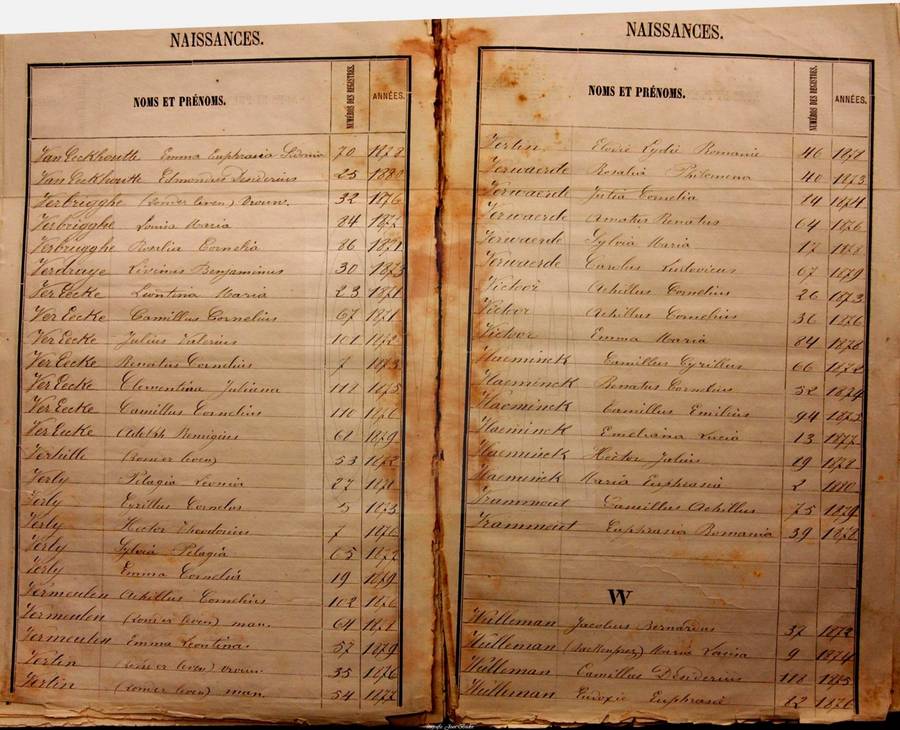 NAISSANCES.
NOMS ET PRÉNOMS. NUMÉROS DES REGISTRES. ANNÉES.
Van Eeckhoutte Emma Euphrasia Sidonia 70 1878
Van Eeckhoutte Edmondus Desiderius 25 1880
Verbrugghe (zonder leven) vrouw. 32 1876
Verbrugghe Louisa Maria 84 1877
Verbrugghe Rosalia Cornelia 86 1871
Verdruye Livinus Benjaminus 30 1873
VerEecke Leontina Maria 23 1871
VerEecke Camillus Cornelius 67 1871
VerEecke Julius Valerius 101 1872
VerEecke Renatus Cornelius 7 1873
VerEecke Clementina Juliana 112 1875
VerEecke Camillus Cornelius 110 1876
VerEecke Adolph Remigius 61 1879
Verhille (zonder leven) 53 1872
Verly Pelagia Leonia 27
Verly Cyrillus Cornelus 5 1873
Verly Hector Theodorius 7 1876
Verly Sylvia Pelagia 65 1872
Verly Emma Cornelia 19 1879
Vermeulen Achillus Cornelius 102 1876
Vermeulen (zonder leven) man. 64 1871
Vermeulen Emma Leontina 57 1879
Vertin (zonder leven) vrouw. 35 1876
Vertin (zonder leven) man. 54 1877
NAISSANCES.
NOMS ET PRÉNOMS. NUMÉROS DES REGISTRES. ANNÉES.
Vertin Elodie Lydie Romanie 46 1871
Verwaerde Rosalia Philomena 40 1873
Verwaerde Julia Cornelia 14 1874
Verwaerde Amatus Renatus 64 1876
Verwaerde Sylvia Maria 17 1878
Verwaerde Carolus Ludovicus 67 1879
Victoor Achillus Cornelius 26 1873
Victoor Achillus Cornelius 36 1876
Victoor Emma Maria 84 1878
Vlaeminck Camillus Cyrillus 66 1872
Vlaeminck Renatus Cornelius 52 1874
Vlaeminck Camillus Emilius 94 1873
Vlaeminck Emeliana Lucia 13 1877
Vlaeminck Hector Julius 19 1878
Vlaeminck Maria Euphrasia 2 1880
Vrammout Camillus Achillus 75 1879
Vrammout Euphrasia Romania 39 1878
W
Wulleman Jacobus Bernardus 37 1872
Wulleman Maria Louisa 9 1874
Wulleman Camillus Desiderius 118 1875
Wulleman Eudoxie Euphrasie 82 1876